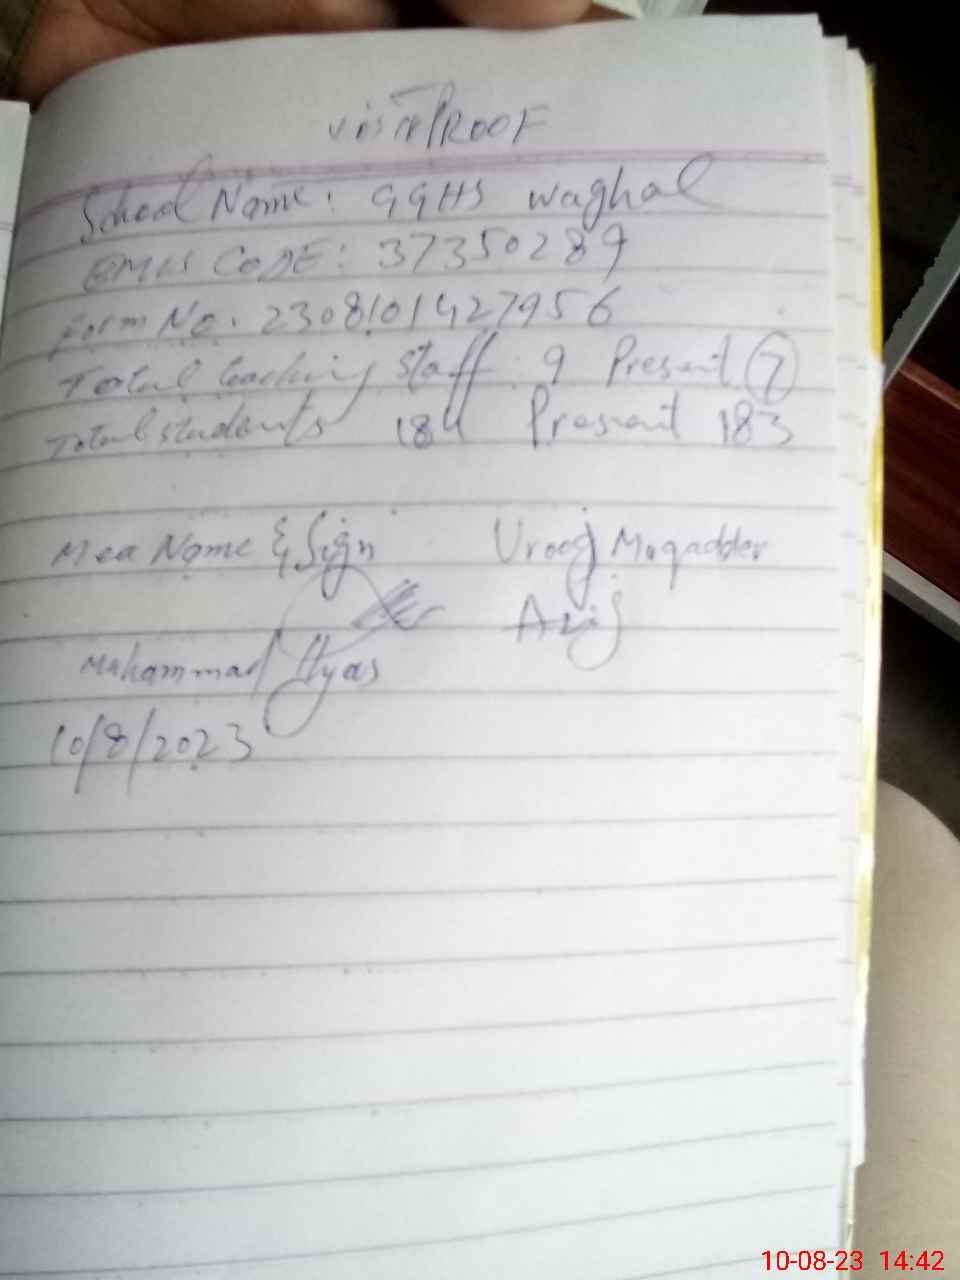 Visit PROOF
School Name: GGHS Waghal
EMIS CODE: 37350289
Form No. 2308101427956
Total teaching staff 9 Present 7
Total students 184 Present 183
Mea Name & Sign Urooj Muqadder
Muhammad Ilyas
10/8/2023
10-08-23 14:42